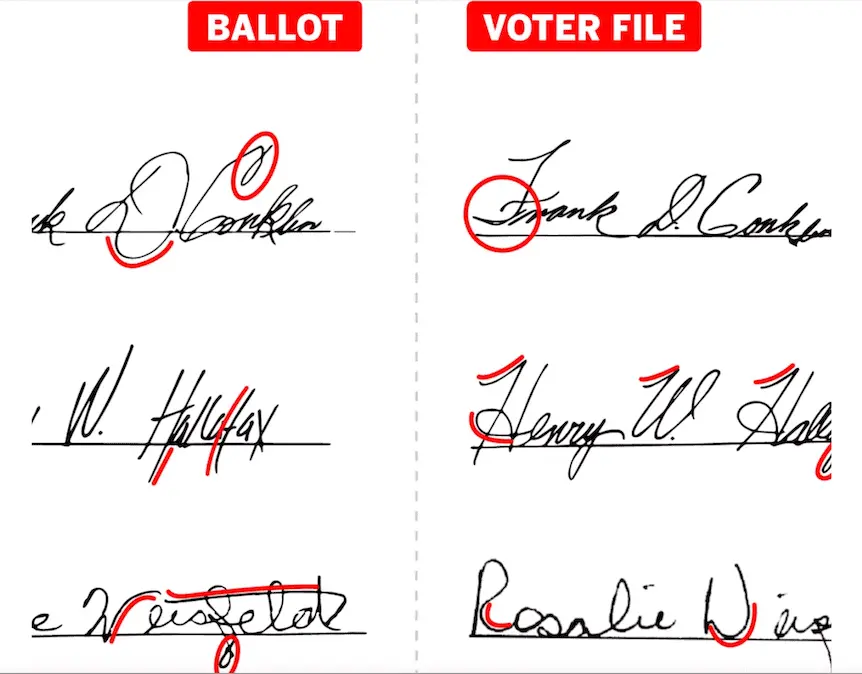 BALLOT VOTER FILE
D. Conklin Frank D. Conklin
W. Halifax Henry W. Hal
e Weisfeldt Rosalie Weis